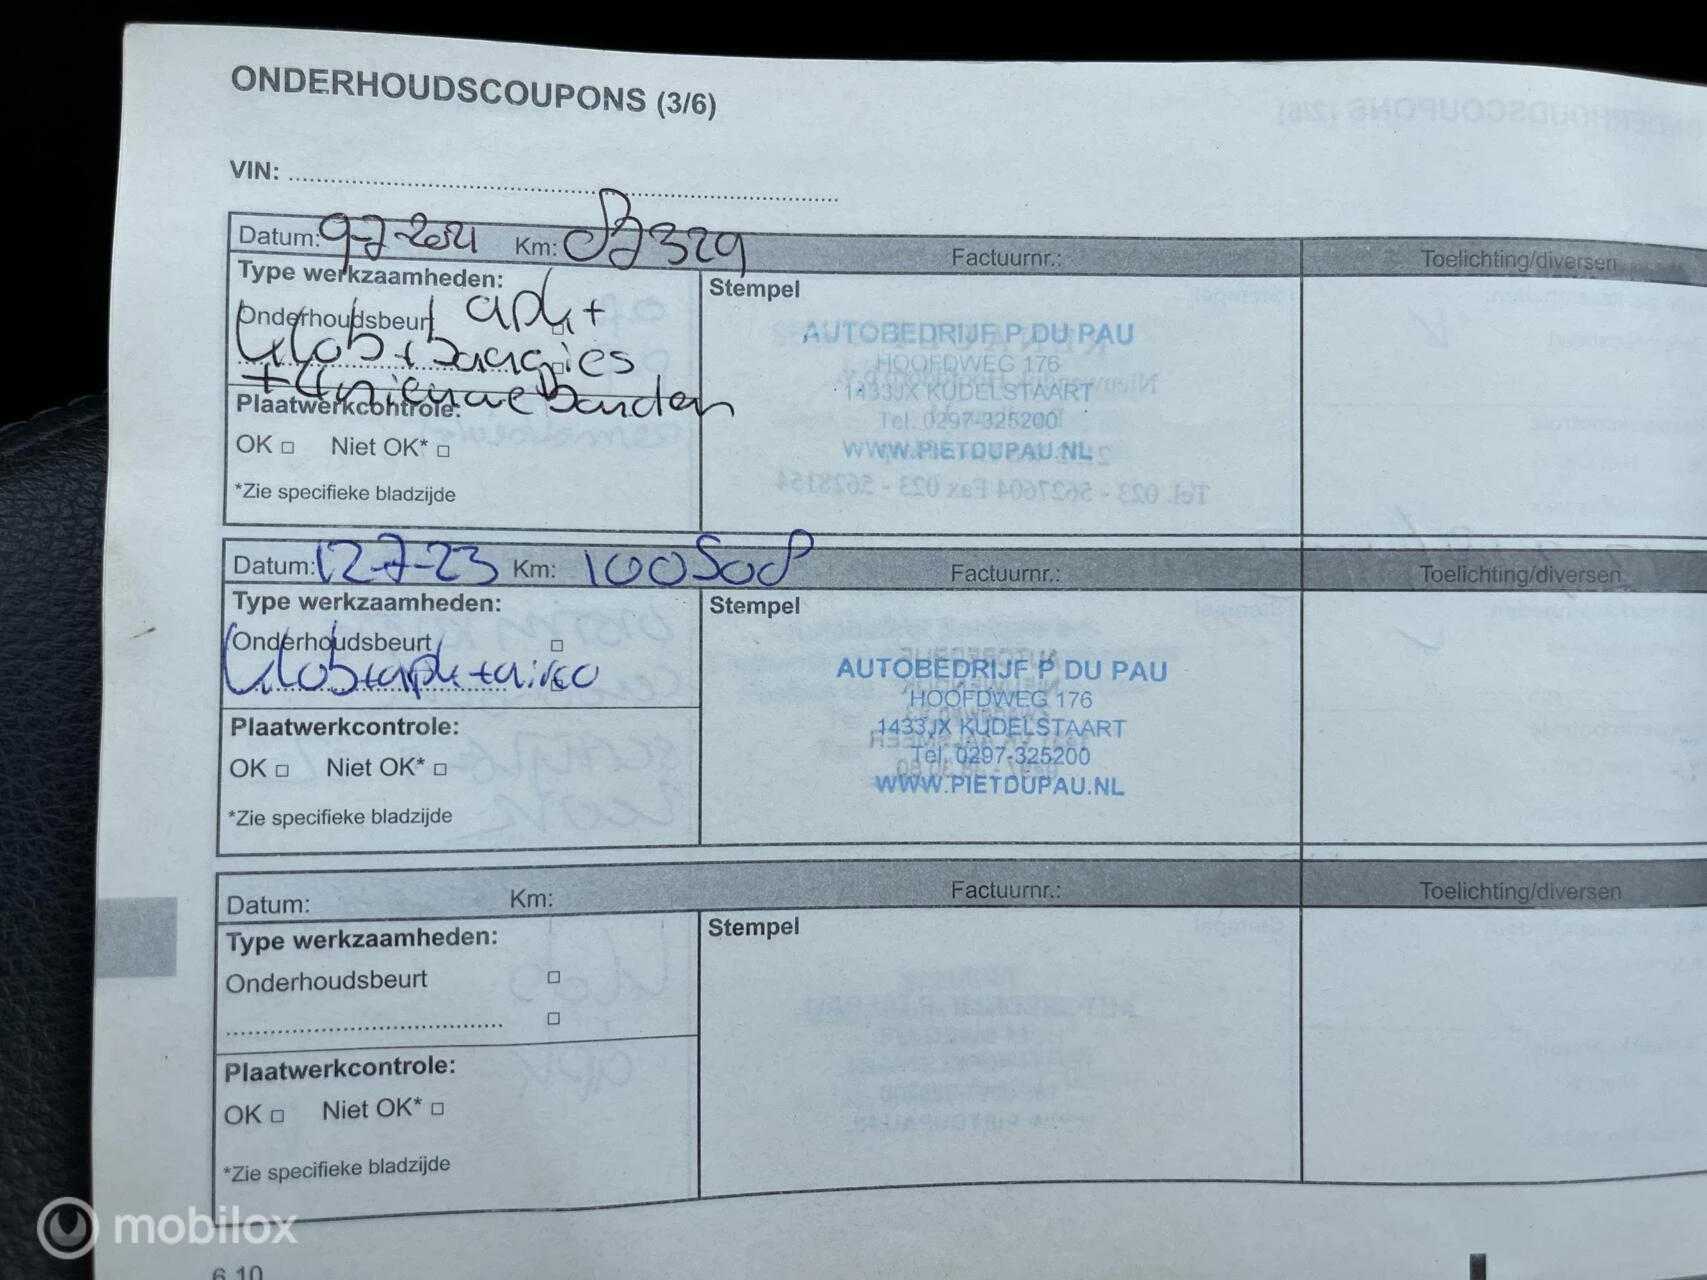 ONDERHOUDSCOUPONS (3/6)
VIN:
Datum: 9-7-2021 Km: Factuurnr.: Toelichting/diversen
Type werkzaamheden: Stempel
Onderhoudsbeurt apk+
+ banden
Plaatwerkcontrole:
OK Niet OK*
*Zie specifieke bladzijde
AUTOBEDRIJF P DU PAU
HOOFDWEG 176
1433JX KUDELSTAART
Tel. 0297-325200
WWW.PIETDUPAU.NL
Datum: 12-7-23 Km: 100508 Factuurnr.: Toelichting/diversen
Type werkzaamheden: Stempel
Onderhoudsbeurt
+apk+airco
Plaatwerkcontrole:
OK Niet OK*
*Zie specifieke bladzijde
AUTOBEDRIJF P DU PAU
HOOFDWEG 176
1433JX KUDELSTAART
Tel. 0297-325200
WWW.PIETDUPAU.NL
Datum: Km: Factuurnr.: Toelichting/diversen
Type werkzaamheden: Stempel
Onderhoudsbeurt
Plaatwerkcontrole:
OK Niet OK*
*Zie specifieke bladzijde
mobilox
6.10